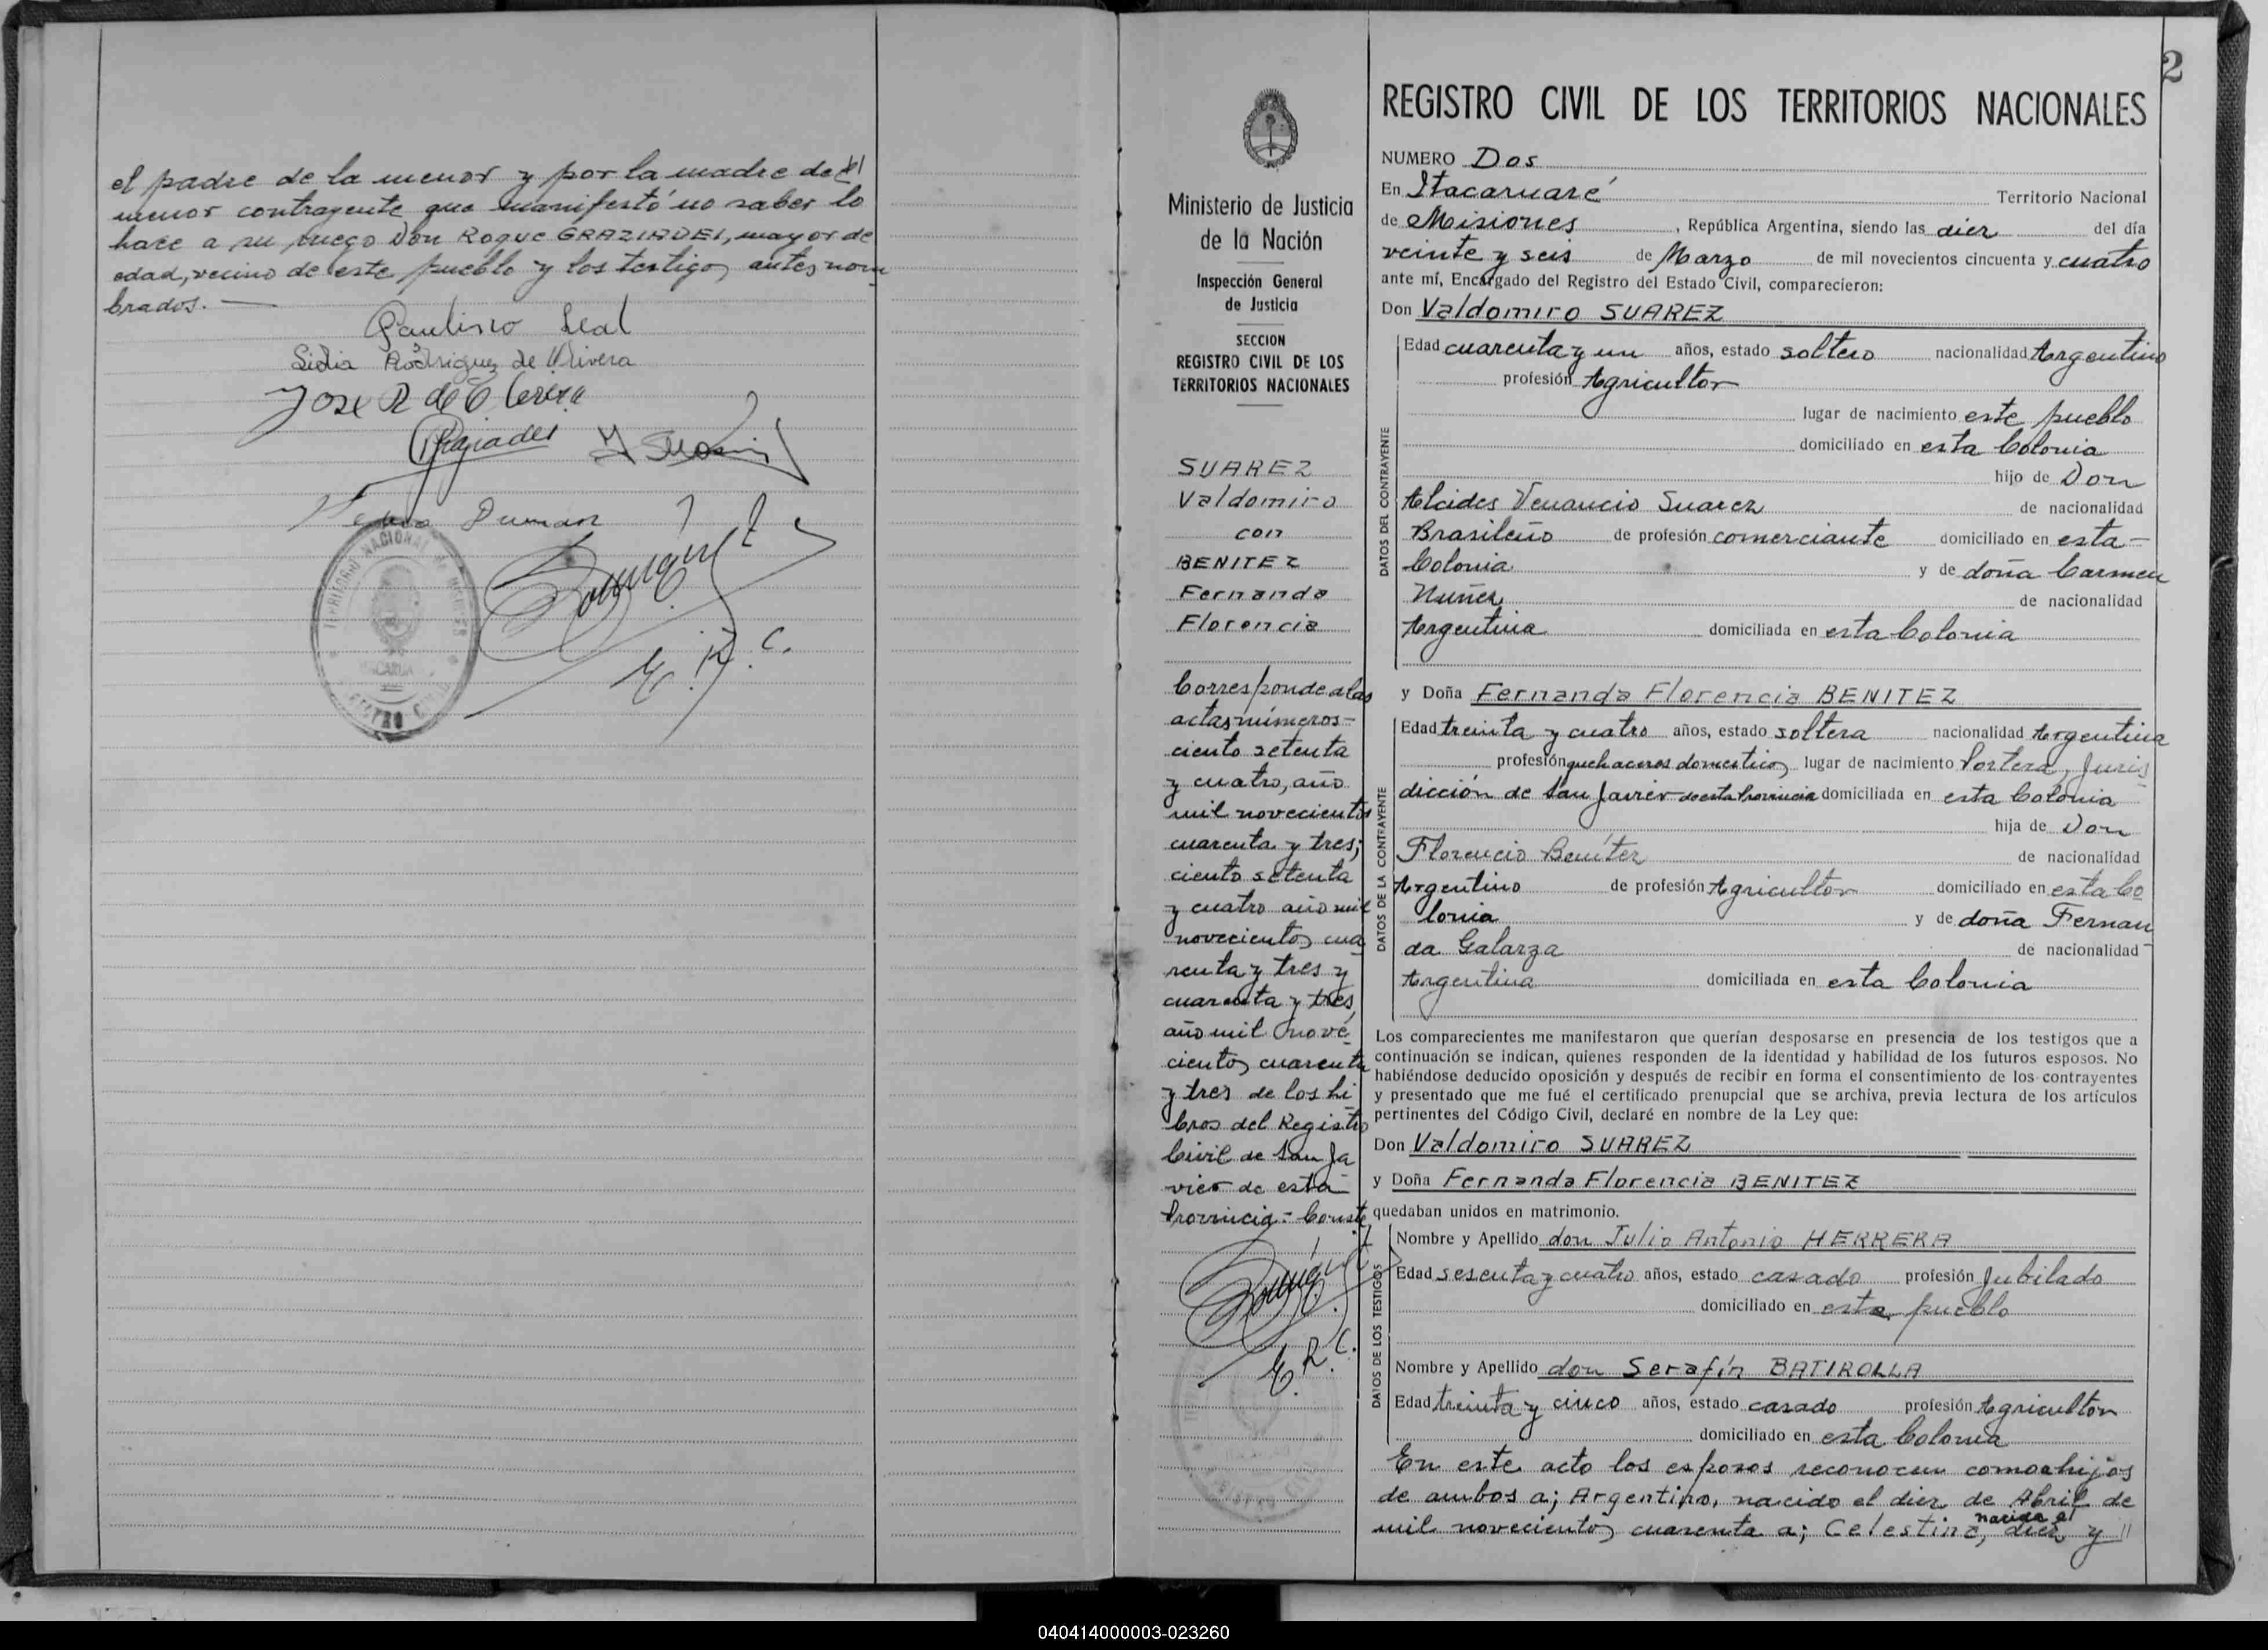 el padre de la menor y por la madre del
menor contrayente que manifestó no saber lo
hace a su ruego Don Roque GRAZIADEI, mayor de
edad, vecino de este pueblo y los testigos antes nom
brados.—
Paulino Leal
Sidia Rodriguez de Olivera
Jose R de O
E. R. C.
2
REGISTRO CIVIL DE LOS TERRITORIOS NACIONALES
Ministerio de Justicia
de la Nación
Inspección General
de Justicia
SECCION
REGISTRO CIVIL DE LOS
TERRITORIOS NACIONALES
SUAREZ
Valdomiro
con
BENITEZ
Fernanda
Florencia
Corresponde a las
actas números-
ciento setenta
y cuatro, año
mil novecientos
cuarenta y tres;
ciento setenta
y cuatro año mil
novecientos cua
renta y tres y
cuarenta y tres,
año mil nove
cientos cuarenta
y tres de los Li
bros del Registro
Civil de San Ja
vier de esta
Provincia.- Conste
E. R. C.
NUMERO Dos
En Itacaruaré Territorio Nacional
de Misiones, República Argentina, siendo las diez del día
veinte y seis de Marzo de mil novecientos cincuenta y cuatro
ante mí, Encargado del Registro del Estado Civil, comparecieron:
Don Valdomiro SUAREZ
DATOS DEL CONTRAYENTE
Edad cuarenta y un años, estado soltero nacionalidad Argentino
profesión Agricultor
lugar de nacimiento este pueblo
domiciliado en esta Colonia
hijo de Don
Alcides Venancio Suarez de nacionalidad
Brasileño de profesión comerciante domiciliado en esta-
Colonia y de doña Carmen
Nuñez de nacionalidad
Argentina domiciliada en esta Colonia
y Doña Fernanda Florencia BENITEZ
DATOS DE LA CONTRAYENTE
Edad treinta y cuatro años, estado soltera nacionalidad Argentina
profesión quehaceres domesticos lugar de nacimiento Portera, Juris
dicción de San Javier de esta Provincia domiciliada en esta Colonia
hija de Don
Florencio Benítez de nacionalidad
Argentino de profesión Agricultor domiciliado en esta Co
lonia y de doña Fernan
da Galarza de nacionalidad
Argentina domiciliada en esta Colonia
Los comparecientes me manifestaron que querían desposarse en presencia de los testigos que a
continuación se indican, quienes responden de la identidad y habilidad de los futuros esposos. No
habiéndose deducido oposición y después de recibir en forma el consentimiento de los contrayentes
y presentado que me fué el certificado prenupcial que se archiva, previa lectura de los artículos
pertinentes del Código Civil, declaré en nombre de la Ley que:
Don Valdomiro SUAREZ
y Doña Fernanda Florencia BENITEZ
quedaban unidos en matrimonio.
DATOS DE LOS TESTIGOS
Nombre y Apellido don Julio Antonio HERRERA
Edad sesenta y cuatro años, estado casado profesión Jubilado
domiciliado en este pueblo
Nombre y Apellido don Serafín BATIROLLA
Edad treinta y cinco años, estado casado profesión Agricultor
domiciliado en esta Colonia
En este acto los esposos reconocen como hijos
de ambos a; Argentino, nacido el diez de Abril de
nacida el
mil novecientos cuarenta a; Celestina, diez y
040414000003-023260